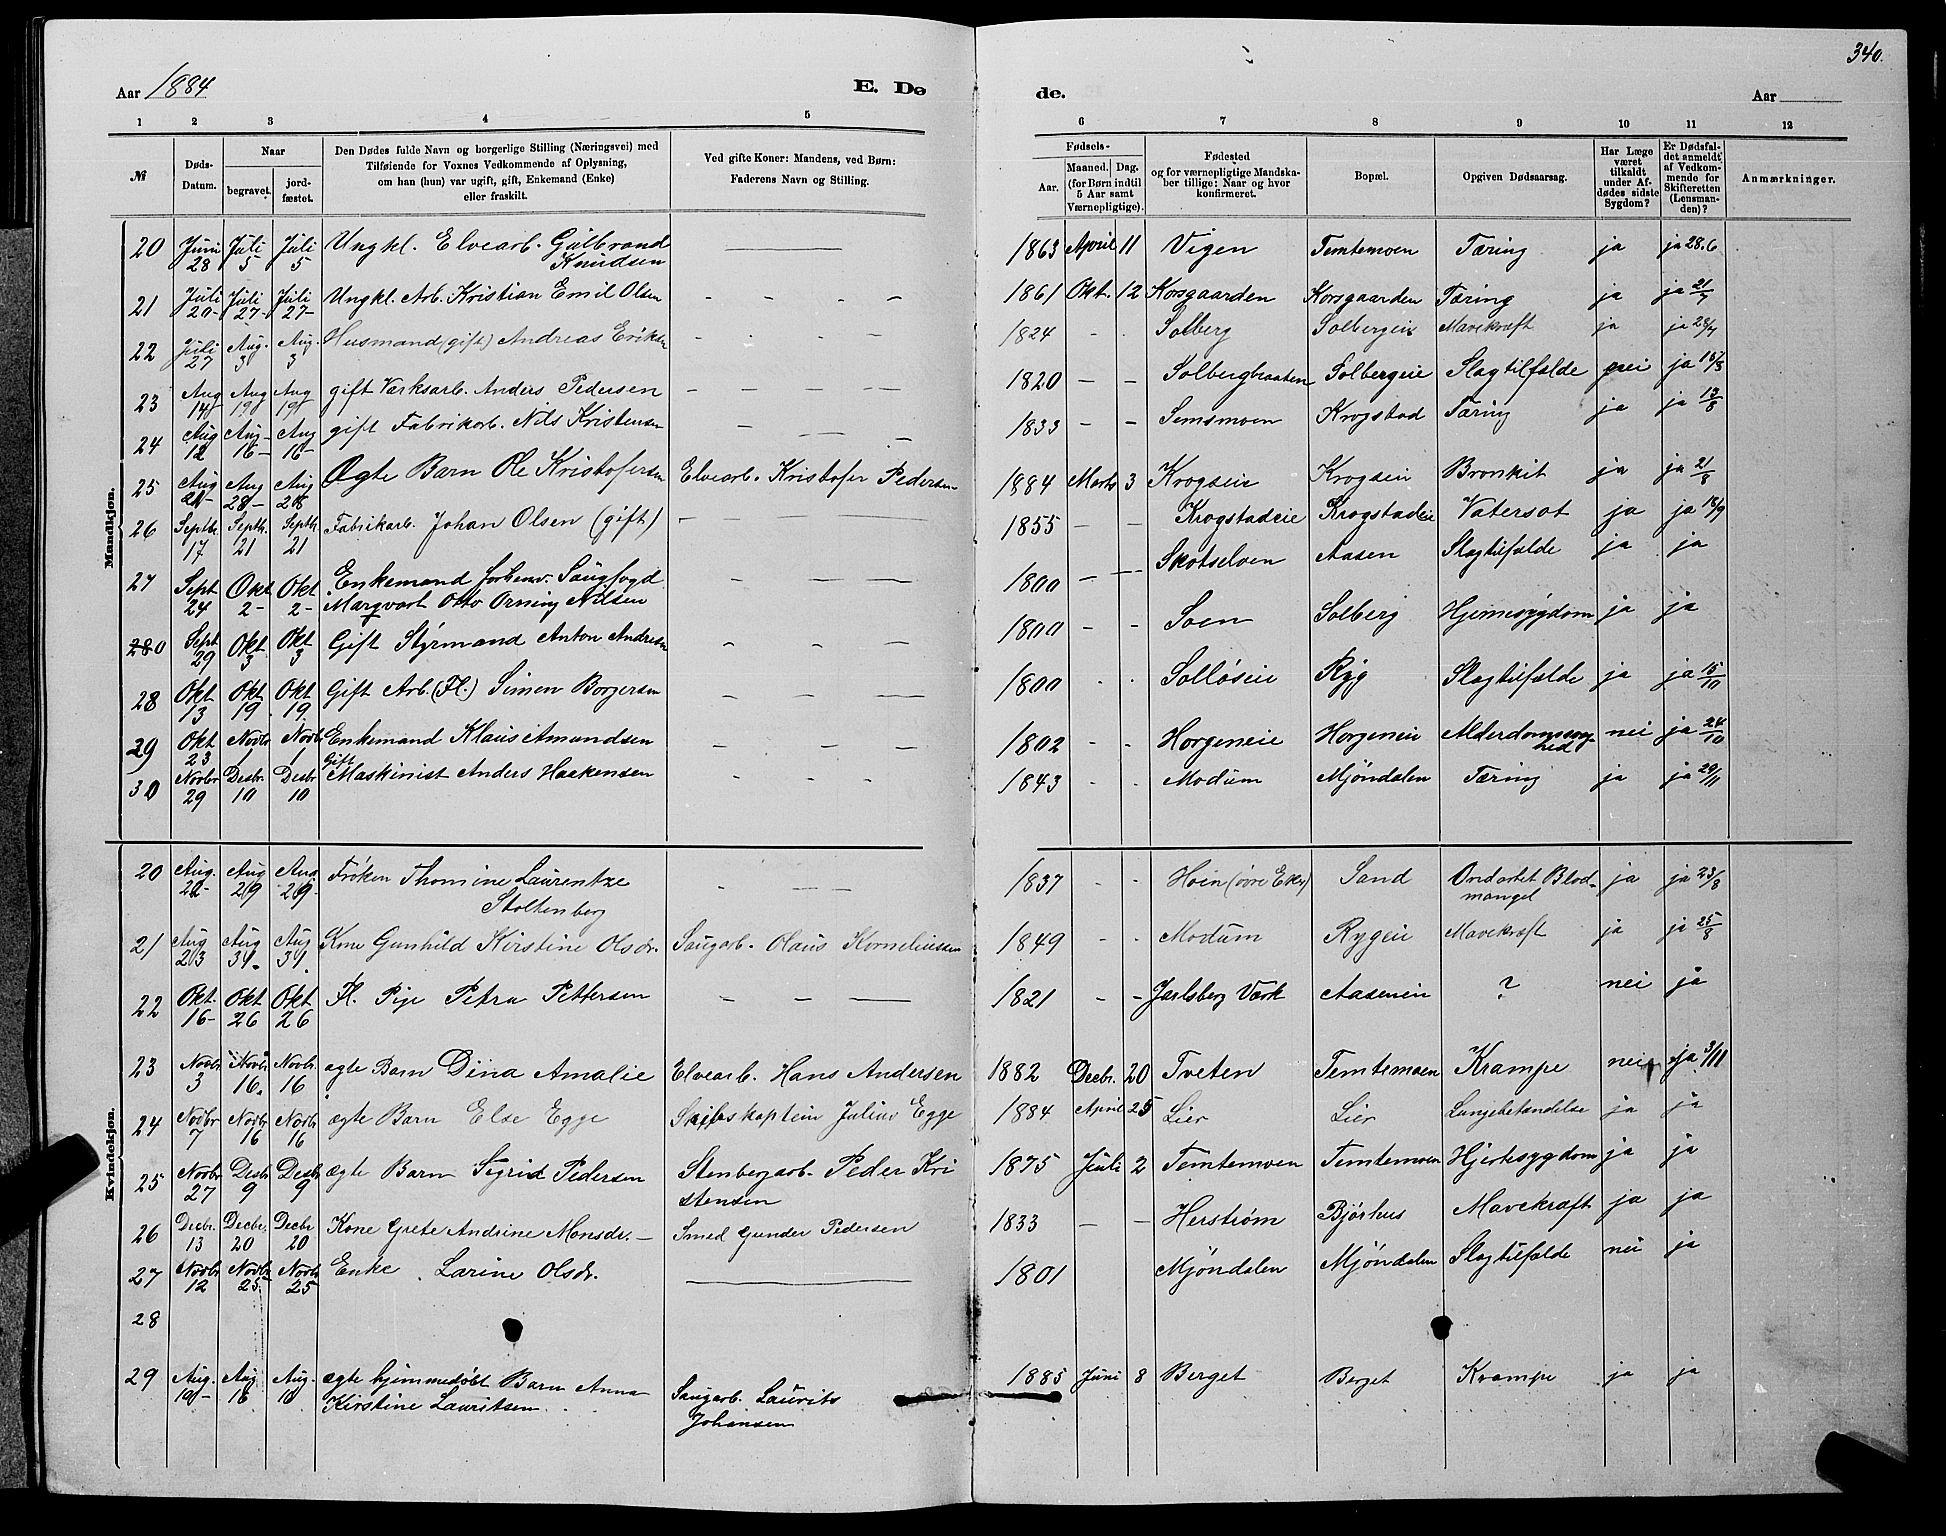 340.
Aar 1884
E. Dø
de.
Aar
1 2 3 4 5
6 7 8 9 10 11 12
№
Døds-
Datum.
Naar
begravet.
jord-
fæstet.
Den Dødes fulde Navn og borgerlige Stilling (Næringsvei) med
Tilføiende for Voxnes Vedkommende af Oplysning,
om han (hun) var ugift, gift, Enkemand (Enke)
eller fraskilt.
Ved gifte Koner: Mandens, ved Børn:
Faderens Navn og Stilling.
Fødsels-
Aar.
Maaned. Dag.
(for Børn indtil
5 Aar samt
Værnepligtige).
Fødested
og for værnepligtige Mandska-
ber tillige: Naar og hvor
konfirmeret.
Bopæl.
Opgiven Dødsaarsag.
Har Læge
været
tilkaldt
under Af-
dødes sidste
Sygdom?
Er Dødsfal-
det anmeldt
af Vedkom-
mende for
Skifteretten
(Lensman-
den)?
Anmærkninger.
Mandkjøn.
20 Juni 28 Juli 5 Juli 5 Ungkl. Elvearb. Gulbrand Knudsen — 1863 April 11 Vigen Temtemoen Tæring ja ja 28.6
21 Juli 20 Juli 27 Juli 27 Ungkl. Arb. Kristian Emil Olsen - - - - 1861 Okt. 12 Korsgaarden Korsgaarden Tæring ja ja 21/7
22 Juli 27 Aug. 3 Aug. 3 Husmand (gift) Andreas Eriksen - - - - 1824 - - Solberg Solbergeie Mavekræft ja ja 28/7
23 Aug 14 Aug 19 Aug 19 gift Værksarb. Anders Pedersen - - - - 1820 - - Solberghaaten Solbergeie Slagtilfælde nei ja
24 Aug 12 Aug 16 Aug 16 gift Fabrikarb. Nils Kristensen - - - 1833 - - Semsmoen Krogstad Tæring ja ja 13/8
25 Aug 21 Aug 28 Aug 28 Ægte Barn Ole Kristofersen Elvearb. Kristofer Pedersen 1884 Marts 3 Krogseie Krogseie Bronkit ja ja 21/8
26 Septbr. 17 Septbr. 21 Septbr. 21 Fabrikarb. Johan Olsen (gift) - - - 1855 - - Krogstadeie Krogstadeie Vatersot ja ja 18/9
27 Sept 24 Okt 2 Okt 2 Enkemand Saugfogd
Margvart Otto Orning Nilsen - - - 1800 - - Skotselven Aasen Slagtilfælde ja ja
280 Sept 29 Okt 3 Okt 3 Gift Styrmand Anton Andresen - - - 1800 - - Soen Solberg Hjernesygdom ja ja
28 Okt 13 Okt 19 Okt 19 Gift Arb. (Fl.) Simen Borgersen - - - 1800 - - Solløseie Ryg Slagtilfælde ja ja 15/10
29 Okt 23 Novbr 1 Novbr 1 Enkemand Klaus Amundsen - - - 1802 - - Horgeneie Horgeneie Alderdomssvaghed nei ja 24/10
30 Novbr 29 Desbr. 10 Desbr. 10 Gift Maskinist Anders Haakensen - - - 1843 - - Modum Mjöndalen Tæring ja ja 29/11
Kvindekjøn.
20 Aug. 22 Aug 29 Aug 29 Fröken Thomine Laurentze
Stoltenberg - - - 1837 - - Hoin (övre Eker) Sand Ondartet Blod-
mangel ja ja 23/8
21 Aug 23 Aug 31 Aug 31 Kone Gunhild Kirstine Olsdr. Saugarb. Olaus Korneliussen 1849 - - Modum Rygeie Mavekræft ja ja 25/8
22 Okt. 16 Okt 26 Okt 26 Fl. Pige Petra Pettersen - - - 1821 - - Jarlsberg Værk Aaseneie ? nei ja
23 Novbr 3 Novbr. 16 Novbr. 16 ægte Barn Dina Amalie Elvearb. Hans Andersen 1882 Decbr. 20 Tveten Temtemoen Krampe nei ja 3/11
24 Novbr 7 Novbr. 16 Novbr. 16 ægte Barn Else Egge Skibskaptein Julius Egge 1884 April 25 Lier Lier Lungebetændelse ja ja
25 Novbr 27 Desbr 9 Desbr 9 ægte Barn Sigrid Pedersen Stenbergarb. Peder Kri
stensen 1875 Juli 2 Temtemoen Temtemoen Hjertesygdom ja ja
26 Decbr. 13 Decbr. 20 Decbr 20 Kone Grete Andrine Monsdr. — Smed Gunder Pedersen 1833 - - Herstrøm Bjørhus Mavekræft ja ja
27 Novbr 12 Novbr 25 Novbr 25 Enke Larine Olsdr. — 1801 Mjöndalen Mjöndalen Slagtilfælde nei ja
28
29 Aug. 10 Aug 16 Aug. 16 ægte hjemmedøbt Barn Anna
Kirstine Lauritsen Saugarb. Laurits
Johansen 1885 Juni 8 Berget Berget Krampe ja ja